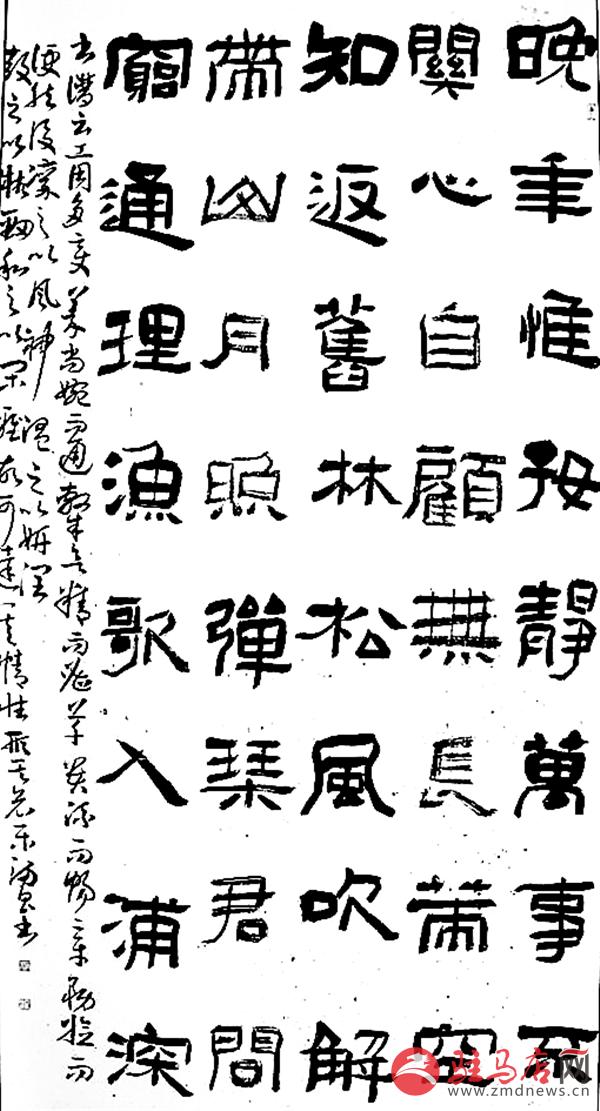 晚年惟好靜萬事不
關心自顧無長策空
知返舊林松風吹解
帶山月照彈琴君問
窮通理漁歌入浦深
書譜云工用多變篆尚婉而通隸欲精而密草貴流而暢章務檢而
便然後凜之以風神溫之以妍潤
鼓之以枯勁和之以閑雅故可達其情性形其哀樂
驻马店网
www.zmdnews.cn